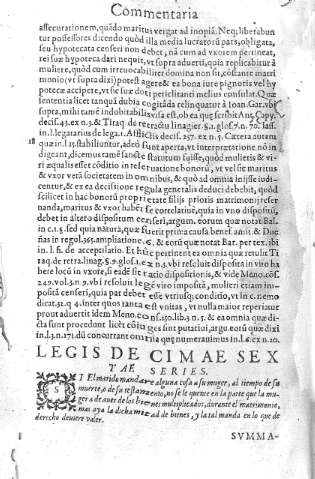 Commentaria
assecurationem, quãdo maritus vergat ad inopiã. Neq; liberabun
tur possessores dicendo quòd illa media lucratorũ pars, obligata,
seu hypotecata censeri non debet, nã cum ad vxorem pertineat,
rei suæ hypoteca dari nequit, vt supra aduerti, quia replicabitur à
muliere, quòd cum irreuocabiliter domina non sit, cõstante matri
monio (vt supra dixi) potest agere & ea bona iure pignoris vel hy
potecæ accipere, vt se suo doti periclitanti melius consulat. Quæ
sententia licet tanquã dubia cogitãda relinquatur à Ioan. Gar. vbi
supra, mihi tamẽ indubitabilis visa est, ob ea quæ scribit Ant. Capy.
decis. 43. ex n. 3. & Tiraq. de retractu linagier. §. 1. glos. 7. n. 70. Iass.
in l. legatarius de lega. 1. Afflictis deci. 257. ex n. 5. Cætera autem
18 quæ in l. 15. stabiliuntur, adeò sunt aperta, vt interpretatione nõ in
digeant, dicemus tamẽ sanctè statutum fuisse, quòd mulieris & vi
ri æqualis esset cõditio in retentione honorũ, vt vel sic maritus
& vxor verà societatem in omnibus, & quò ad omnia inijsse iudi
centur, & ex ea decisione regula generalis deduci debebit, quòd
scilicet in hac bonorũ proprietate filijs prioris matrimonij reser
uanda, maritus & vxor habẽt se correlatiuè, quia in vno dispositũ,
debet in altero dispositum censeri, argum. eorum quæ notat Bal.
in c. 1. §. sed quia natura, quæ fuerit prima causa benef. amit. & Duc
ñas in regul. 365. ampliatione. 6. & eorũ quæ notat Bar. per tex. ibi
in l. si. de acceptilatio. Et huc pertinent ea omnia quæ retulit Ti
raq. de retra. linag. §. 9. glos. 1. &c. n. 3. vbi resoluit dispositã in viro ha
bere locũ in vxore, si eadẽ sit ratio dispositionis, & vide Meno. cõs.
249. vol. 3. n. 9. vbi resoluit legẽ viro impositã, mulieri etiam im
positã censeri, quia par debet esse vtriusq; conditio, vt in c. nemo
dicat. 32. q. 4. inter quos tanta est vnitas, vt nulla maior reperiatur
prout aduertit idem Meno. cõs. 150. lib. 3. n. 5. & ea omnia quæ di
cta sunt procedunt licèt cõiuges sint putatiui, argu. eorũ quæ dixi
in l. 3. n. 171. dũ concurrant omnia quæ numerauimus in l. 6. ex n. 10.
LEGIS DECIMAE SEX
TAE SERIES.
SI El marido mandare alguna cosa a su muger, al tiempo de su
muerte, o de su testamento, no se le quente en la parte que la mu
ger a de auer de los bienes multiplicados, durante el matrimonio,
mas aya la dicha mitad de bienes, y la tal manda en lo que de
derecho deuiere valer.
SVMMA-